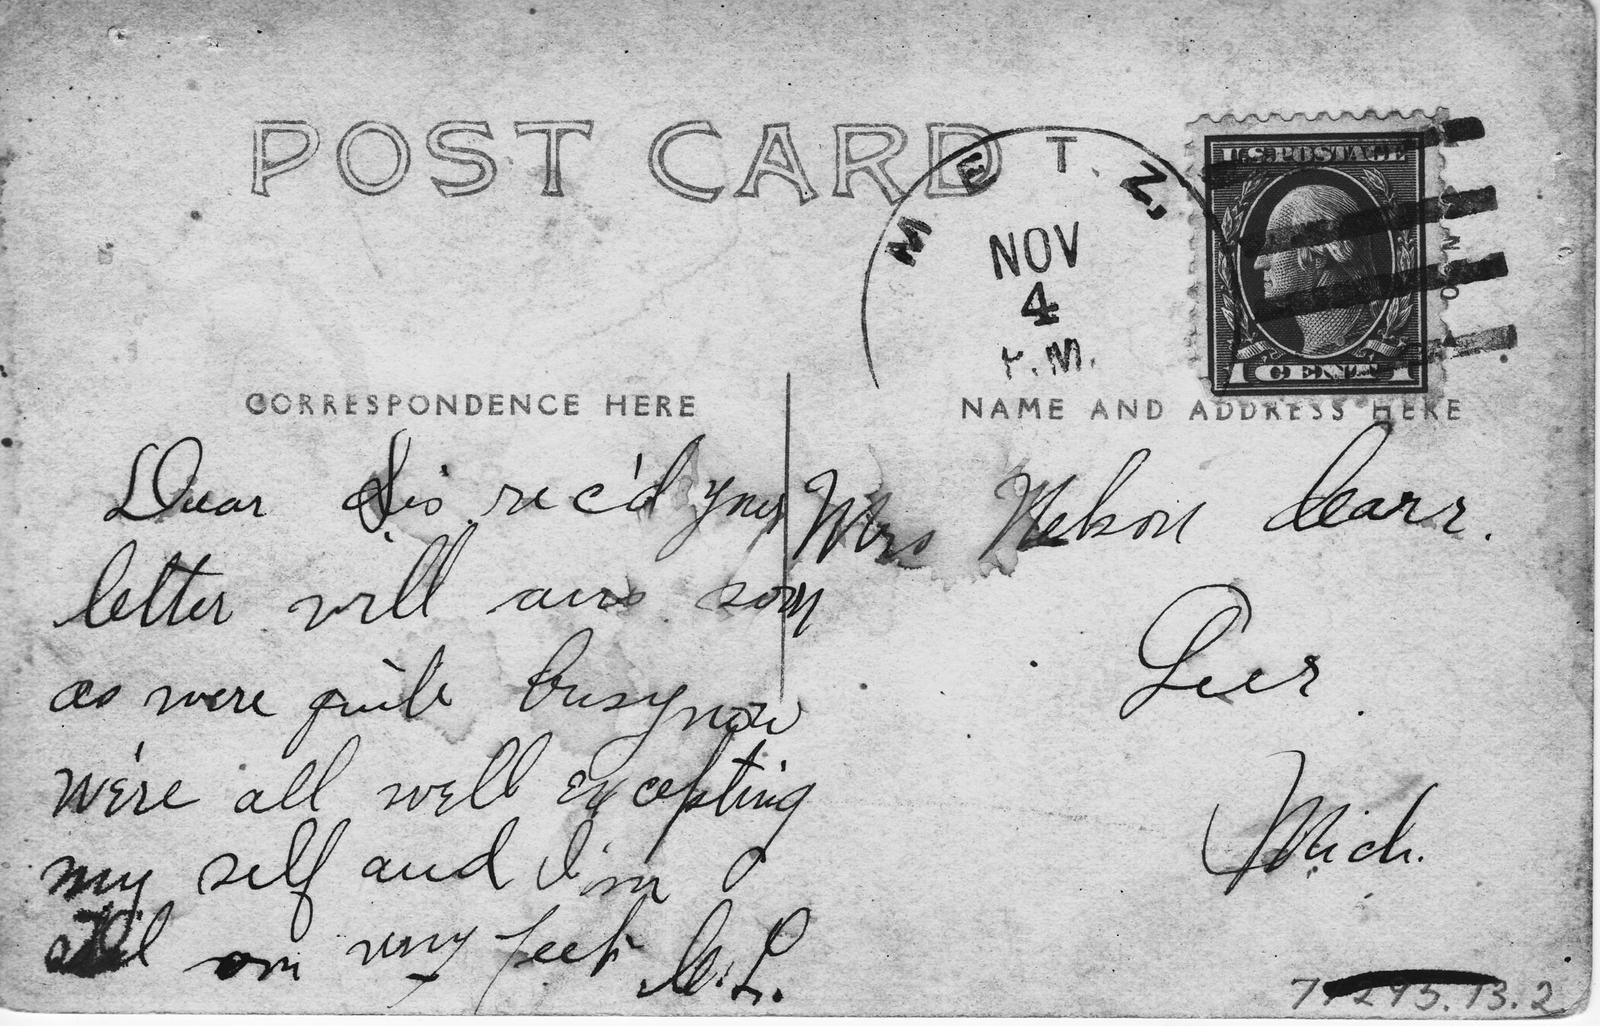 POST CARD
M E T Z,
NOV
4
P.M.
U.S. POSTAGE
1 CENT 1
CORRESPONDENCE HERE
NAME AND ADDRESS HERE
Dear Sis rec'd your
letter will ans soon
as were quite busy now
We're all well excepting
my self and I'm
still on my feet
Mrs Nelson Carr.
Leer
Mich.